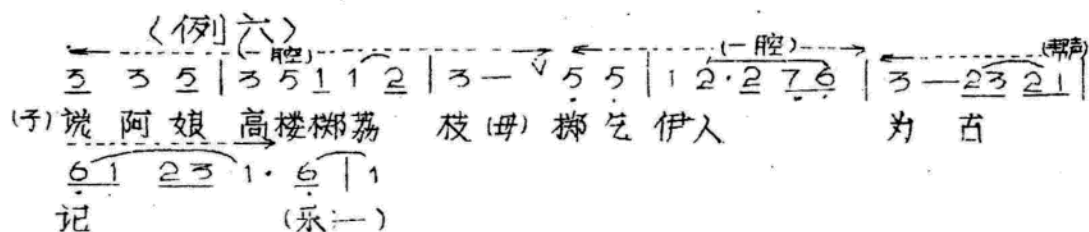 〈例六〉
(一腔) (一腔) (帮声)
3 3 5 | 3 5 1 1 2 | 3 — ∨ 5 5 | 1 2·2 7 6 | 3 — 23 21 |
(子)说 阿 娘 高楼掷荔 枝(毋)掷乞伊人 为 古
6 1 23 1· 6 | 1
记 (乐一)